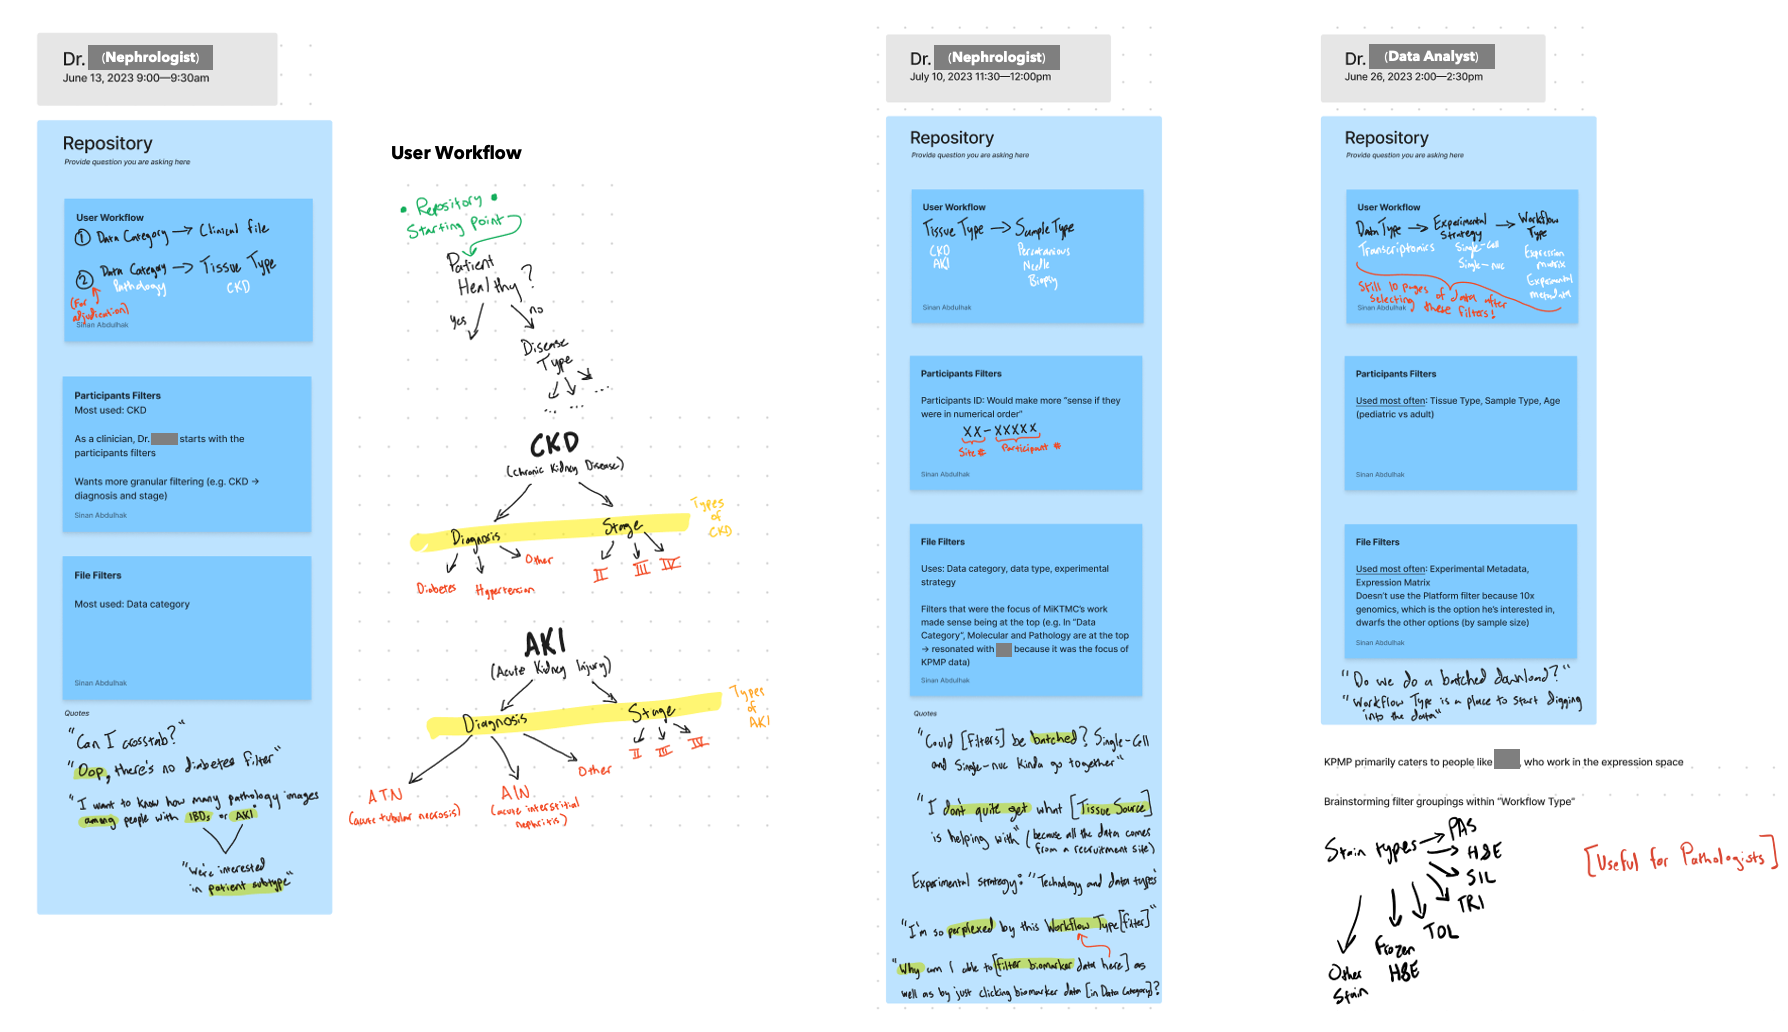 Dr. (Nephrologist)
June 13, 2023 9:00—9:30am
Repository
Provide question you are asking here
User Workflow
① Data Category → Clinical file
② Data Category → Tissue Type
Pathology CKD
(For
adjudication)
Sinan Abdulhak
Participants Filters
Most used: CKD
As a clinician, Dr. starts with the
participants filters
Wants more granular filtering (e.g. CKD →
diagnosis and stage)
Sinan Abdulhak
File Filters
Most used: Data category
Sinan Abdulhak
Quotes
"Can I crosstab?"
"Oop, there's no diabetes filter"
"I want to know how many pathology images
among people with IBDs or AKI"
"We're interested
in patient subtype"
User Workflow
• Repository •
Starting Point
Patient
Healthy?
yes
no
Disease
Type
... ... ...
CKD
(Chronic Kidney Disease)
Types
of
CKD
Diagnosis
Stage
Diabetes
Hypertension
Other
II III IV
AKI
(Acute Kidney Injury)
Types
of
AKI
Diagnosis
Stage
II III IV
ATN
(acute tubular necrosis)
AIN
(acute interstitial
nephritis)
Other
Dr. (Nephrologist)
July 10, 2023 11:30—12:00pm
Repository
Provide question you are asking here
User Workflow
Tissue Type → Sample Type
CKD
AKI
Percutanious
Needle
Biopsy
Sinan Abdulhak
Participants Filters
Participants ID: Would make more “sense if they
were in numerical order”
XX-XXXXX
Site #
Participant #
Sinan Abdulhak
File Filters
Uses: Data category, data type, experimental
strategy
Filters that were the focus of MiKTMC's work
made sense being at the top (e.g. In “Data
Category”, Molecular and Pathology are at the top
→ resonated with because it was the focus of
KPMP data)
Sinan Abdulhak
Quotes
"Could [filters] be batched? Single-Cell
and Single-nuc kinda go together"
"I don't quite get what [Tissue Source]
is helping with" (because all the data comes
from a recruitment site)
Experimental strategy: "Technology and data types"
"I'm so perplexed by this Workflow Type [filter]"
"Why am I able to [filter biomarker data here] as
well as by just clicking biomarker data [in Data Category]?
Dr. (Data Analyst)
June 26, 2023 2:00—2:30pm
Repository
Provide question you are asking here
User Workflow
Data Type → Experimental Strategy → Workflow Type
Transcriptomics
Single-cell
Single-nuc
Expression
matrix
Exprimental
metadata
Still 10 pages of data after
selecting these filters!
Sinan Abdulhak
Participants Filters
Used most often: Tissue Type, Sample Type, Age
(pediatric vs adult)
Sinan Abdulhak
File Filters
Used most often: Experimental Metadata,
Expression Matrix
Doesn't use the Platform filter because 10x
genomics, which is the option he's interested in,
dwarfs the other options (by sample size)
Sinan Abdulhak
"Do we do a batched download?"
"Workflow Type is a place to start digging
into the data"
KPMP primarily caters to people like , who work in the expression space
Brainstorming filter groupings within “Workflow Type”
Stain types
PAS
H&E
SIL
TRI
TOL
Frozen
H&E
Other
Stain
[Useful for Pathologists]